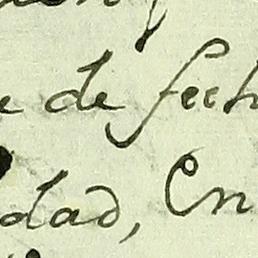 e de fech
dad, En